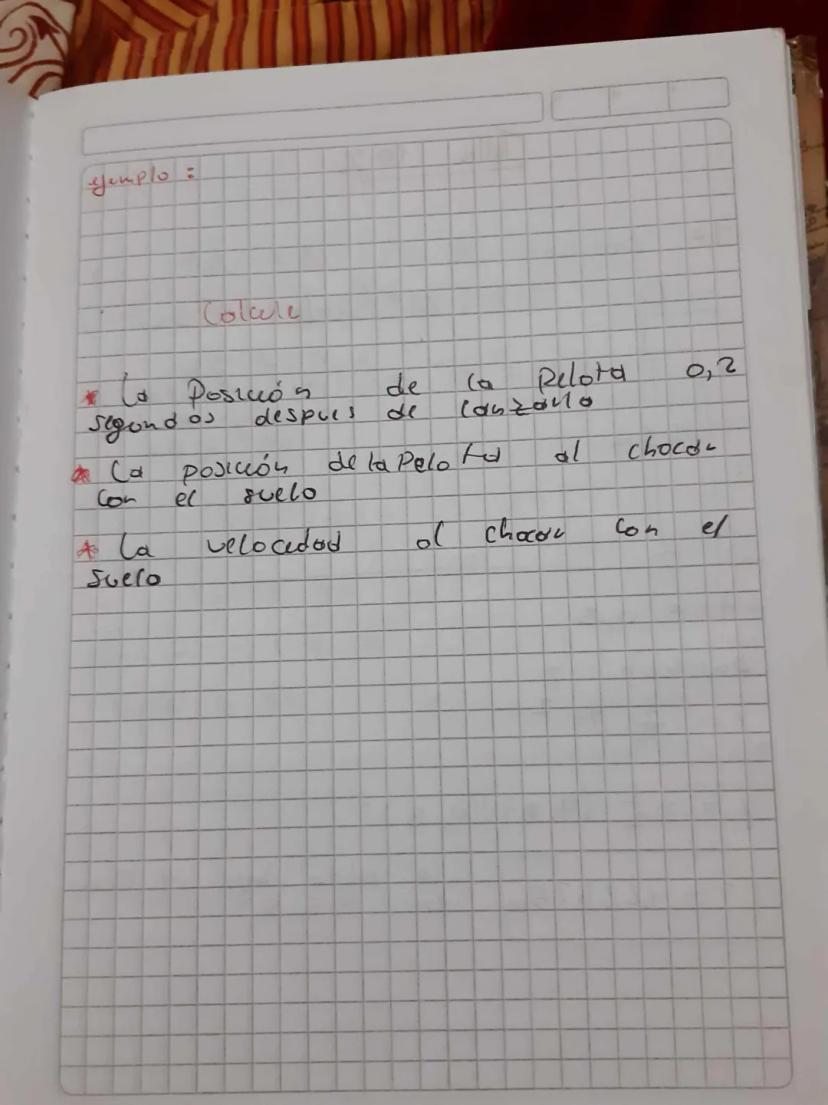 ejemplo :
Calcule
* La Posición de la Pelota 0,2
segundos despues de lanzarlo
* La posición de la Pelota al chocar
con el suelo
* La velocidad al chocar con el
suelo